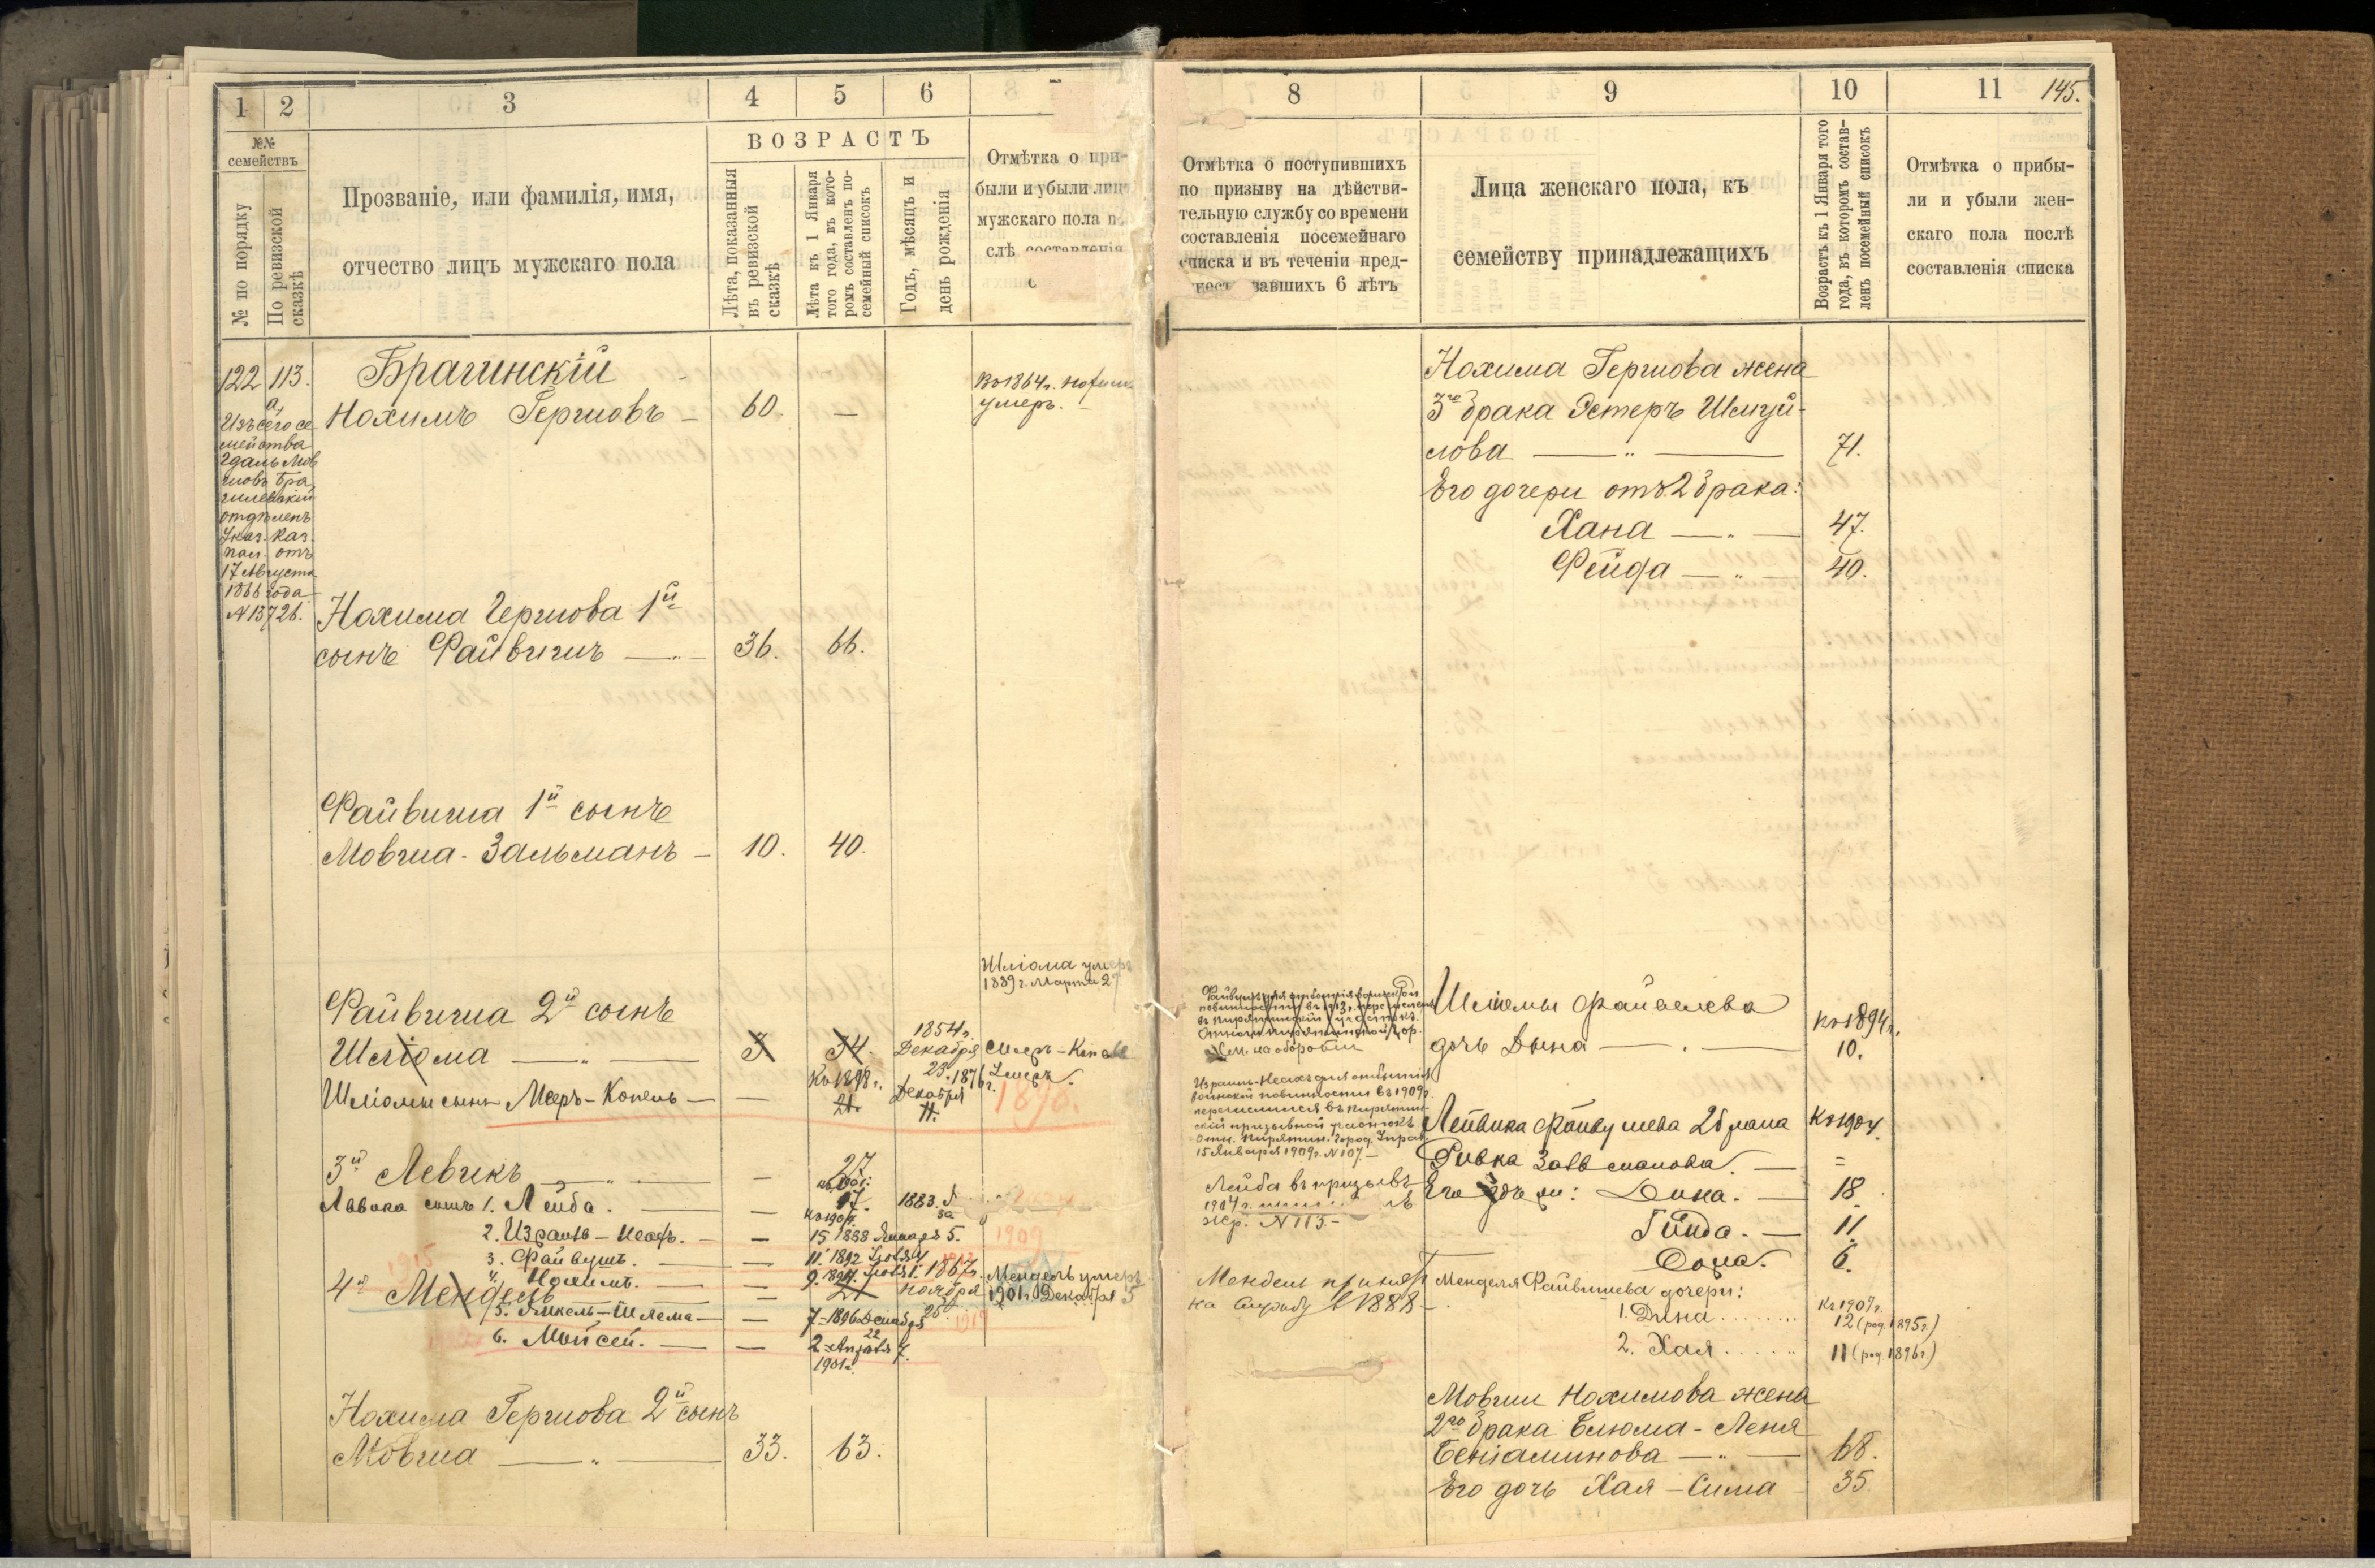 1 2 3 4 5 6
№№ семействъ
№ по порядку
По ревизской сказкѣ
Прозваніе, или фамилія, имя,
отчество лицъ мужскаго пола
ВОЗРАСТЪ
Лѣта, показанныя
въ ревизской
сказкѣ
Лѣта къ 1 Января
того года, въ кото-
ромъ составленъ по-
семейный списокъ
Годъ, мѣсяцъ и
день рожденія
Отмѣтка о при-
были и убыли лиц
мужскаго пола п
слѣ составленія
122 113.
а,
Изъ сего се
мейства
Гдаль Мов
шовъ Бра
гилевскій
отдѣленъ
Указ. Каз.
пал. отъ
17 Августа
1866 года
№ 13726.
Брагинскій
Нохимъ Гершовъ – 60. —
Въ 1864 г. Нохим
умеръ. –
Нохима Гершова 1й
сынъ Файвишъ — 36. 66.
Файвиша 1й сынъ
Мовша-Зальманъ – 10. 40.
Шліома умеръ
1889 г. Марта 27
Файвиша 2й сынъ
Шліома — 34.
1854 г.
Декабря
23.
Шліомы сынъ Мееръ-Копель — —
Къ 1898 г.
21.
1876 г.
Декабря
11.
Мееръ-Копель
Умеръ.
1898.
3й Левикъ — — 27
Лввика сынъ 1. Лейба. — — 17. 1883.
2. Израиль-Исахъ. — — 15 1888 Января 5. 1909
3. Файвушъ. — — 11. 1892
1915
4. Нохимъ. — — 9. 1894.
4й Мендель — 21 1867 г.
Ноября
25
Мендель умеръ
1901 г. Декабря 5
5. Янкель-Шлема — — 7-1896 Декабря 22 1919
6. Мойсей. — — 2 Апрѣля 7.
1901 г.
Нохима Гершова 2й сынъ
Мовша — 33. 63.
8 9 10 11 145.
Отмѣтка о поступившихъ
по призыву на дѣйстви-
тельную службу со времени
составленія посемейнаго
списка и въ теченіи пред-
шествовавшихъ 6 лѣтъ
Лица женскаго пола, къ
семейству принадлежащихъ
Возрастъ къ 1 Января того
года, въ которомъ состав-
ленъ посемейный списокъ
Отмѣтка о прибы-
ли и убыли жен-
скаго пола послѣ
составленія списка
Нохима Гершова жена
3го брака Эстеръ Шмуй-
лова — 71.
Его дочери отъ 2 брака:
Хана — 47.
Фейга — 40.
Файвушъ для отбытія воинской
повинности въ 1913 г. перечисленъ
въ Пирятинскій участокъ.
См. на оборотѣ
Шліомы Файвелева
дочь Дына —
Къ 1894 г.
10.
Израиль-Исахъ для отбытія
воинской повинности въ 1909 г.
перечислился въ Пирятин-
скій призывной участокъ
Отн. Пирятин. Город. Управ.
15 Января 1909 г. № 107. –
Лейвика Файвушева 2 брака
Къ 1904
Ривка Залмонова. — =
Лейба въ призывъ
1904 г.
жр. № 113. –
Его дочери: Дина. — 18
Гинда. — 11.
Соша. 6.
Мендель принятъ
на службу въ 1888 –
Менделя Файвишева дочери:
Къ 1907 г.
1. Дина........ 12 (род. 1895 г.)
2. Хая...... 11 (род. 1896 г.)
Мовши Нохимова жена
2го брака Блюма-Леня
Беніаминова — 68.
Его дочь Хая-Сима 35.